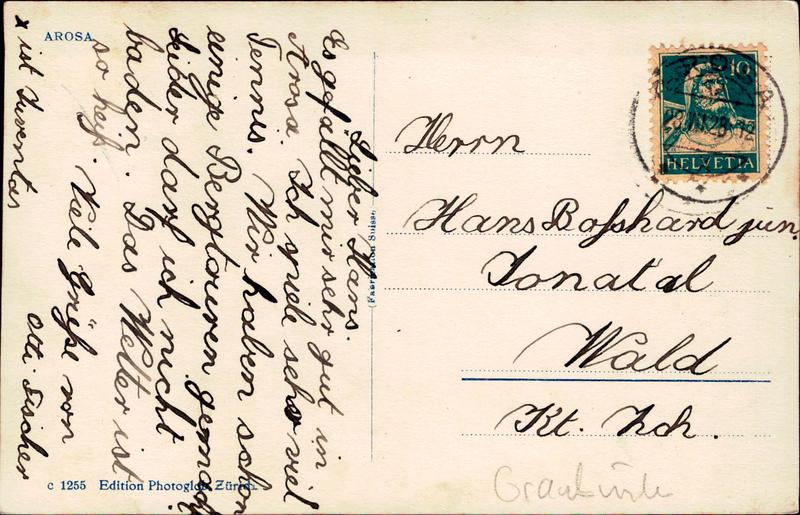 AROSA.
Lieber Hans.
Es gefällt mir sehr gut in
Arosa. Ich spiele sehr viel
Tennis. Wir haben schon
einige Bergtouren gemacht
Leider darf ich nicht
baden. Das Wetter ist
so heiß. Viele Grüße von
Otti Fischer
x ist Juventas
c 1255 Edition Photoglob, Zürich.
(Fabrication Suisse)
AROSA
10
HELVETIA
Herrn
Hans Boßhard jun.
Jonatal
Wald
Kt. Zch.
Graubünden